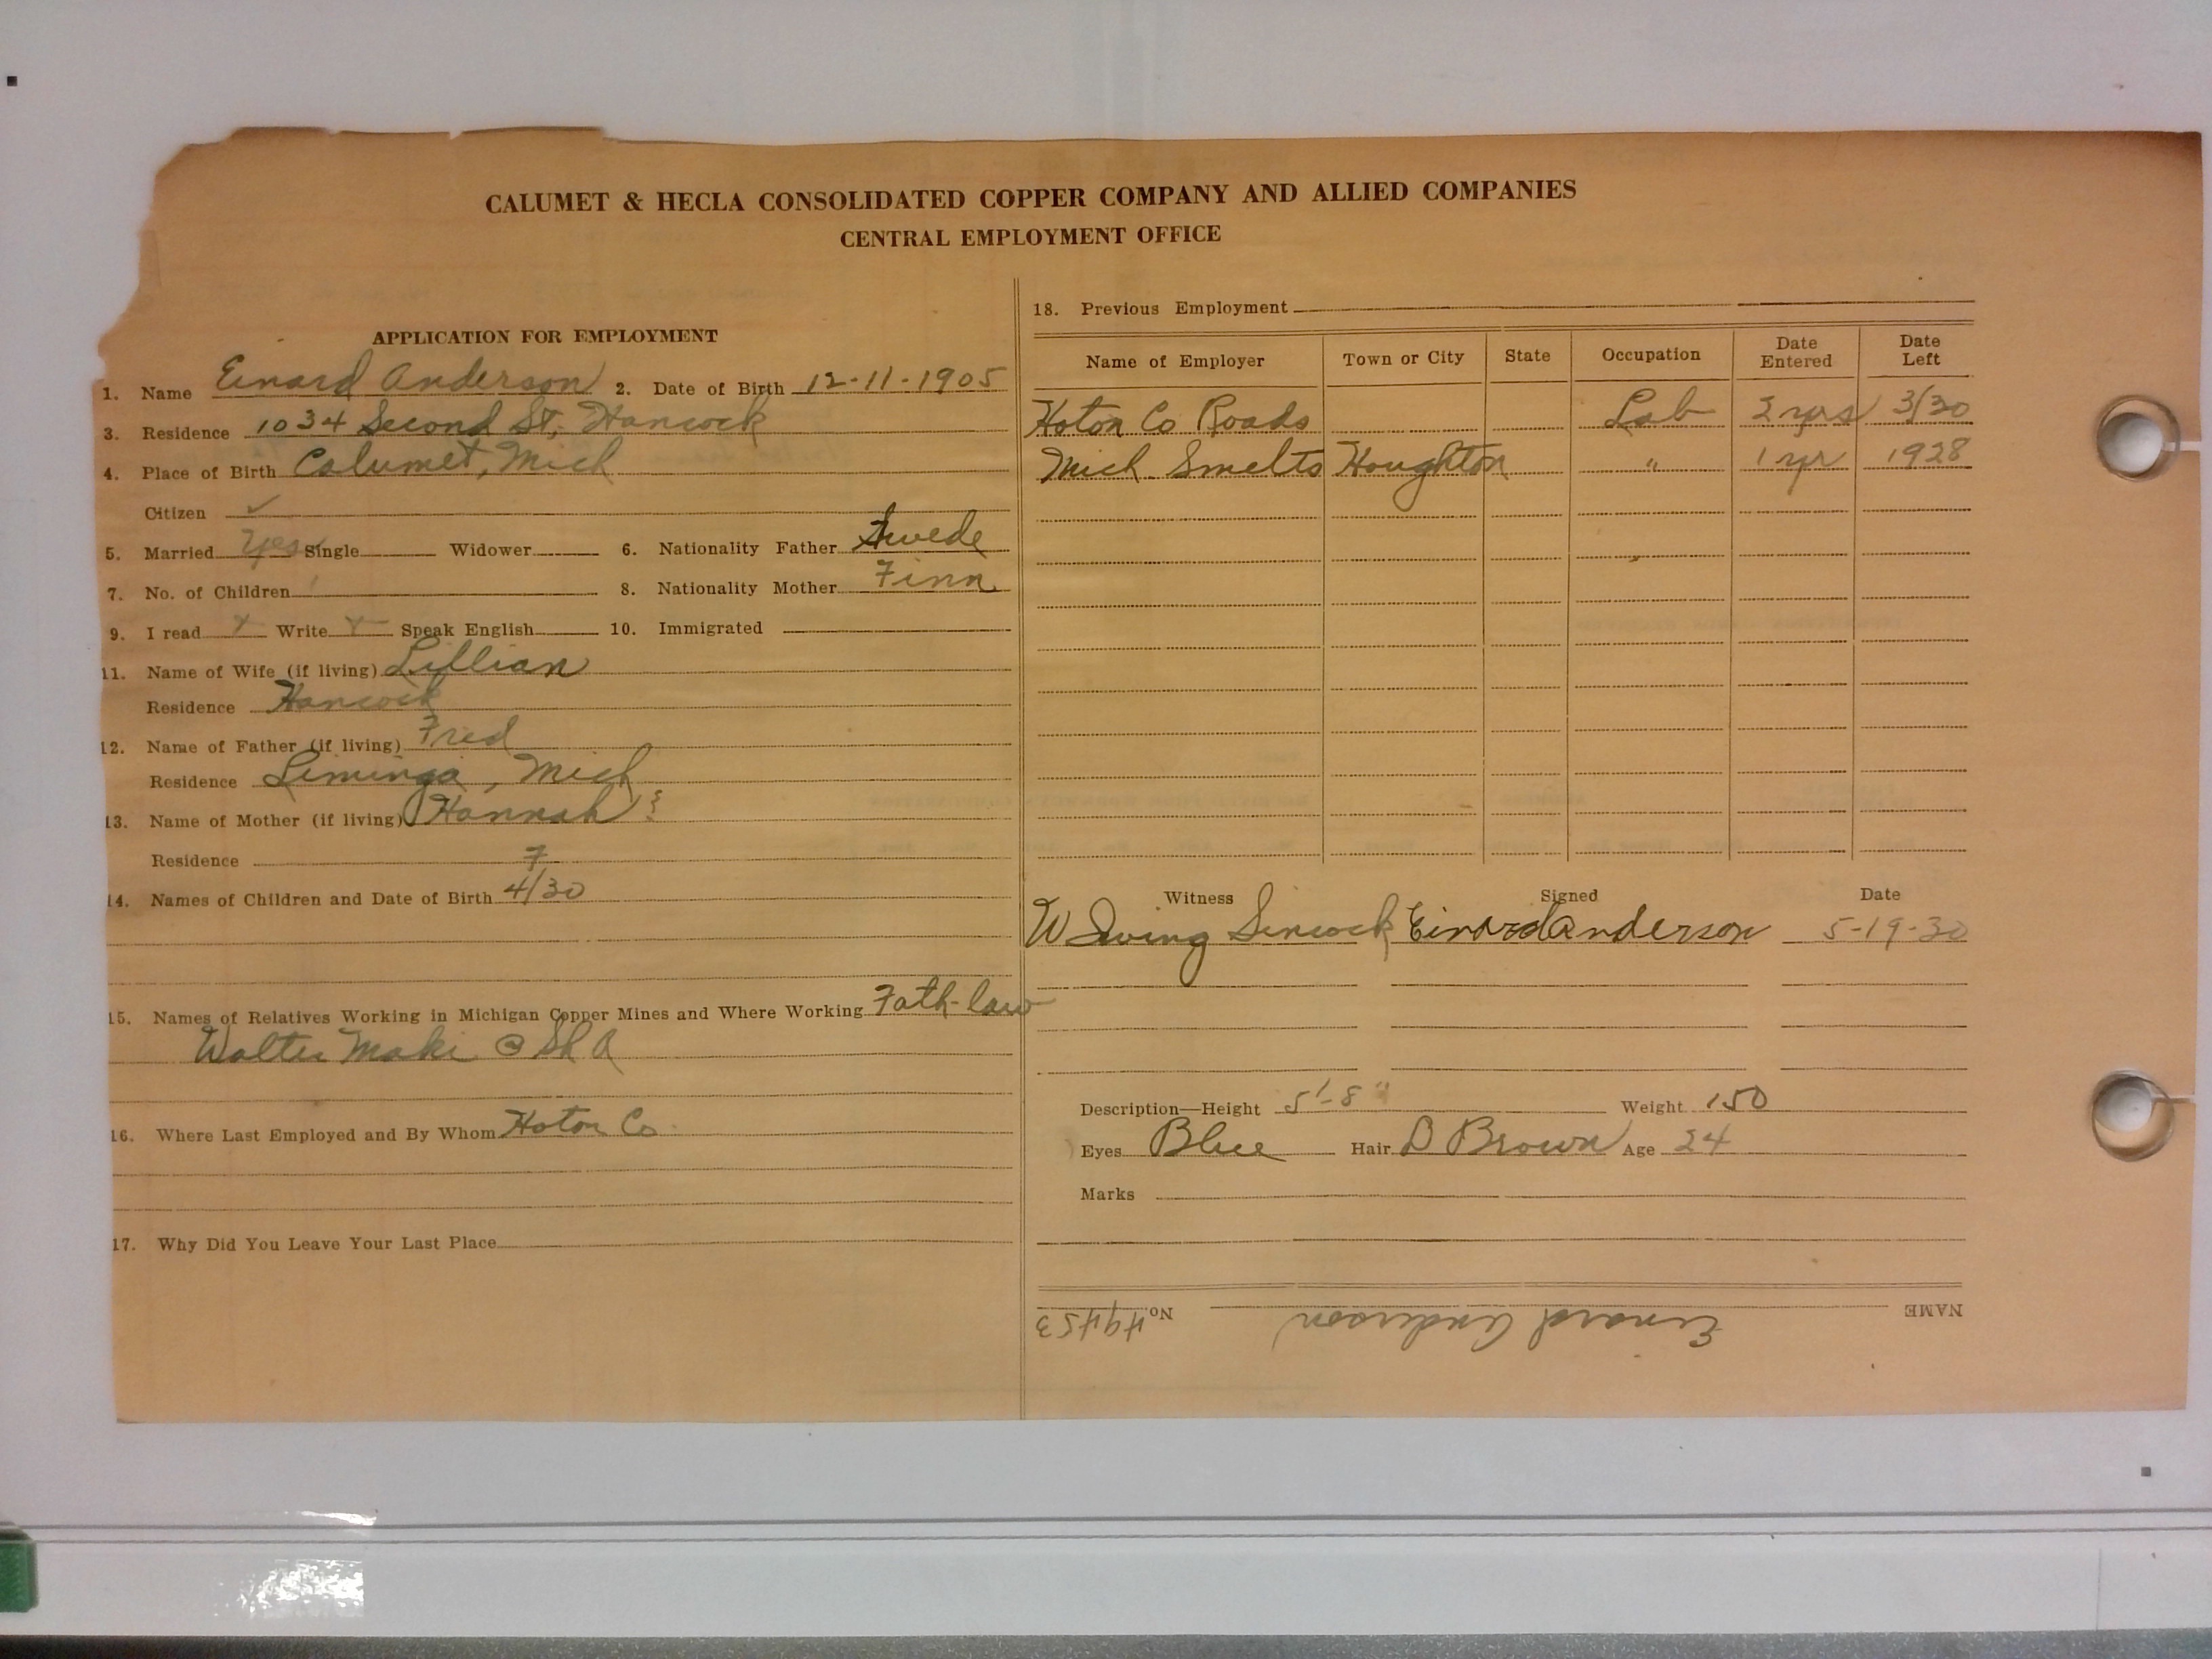 CALUMET & HECLA CONSOLIDATED COPPER COMPANY AND ALLIED COMPANIES
CENTRAL EMPLOYMENT OFFICE
APPLICATION FOR EMPLOYMENT
1. Name Einard Anderson 2. Date of Birth 12-11-1905
3. Residence 1034 Second St, Hancock
4. Place of Birth Calumet, Mich
Citizen ✓
5. Married Yes Single Widower 6. Nationality Father Swede
7. No. of Children 1 8. Nationality Mother Finn
9. I read x Write x Speak English 10. Immigrated
11. Name of Wife (if living) Lillian
Residence Hancock
12. Name of Father (if living) Fred
Residence Liminga, Mich
13. Name of Mother (if living) Hannah
Residence
14. Names of Children and Date of Birth 4/30
15. Names of Relatives Working in Michigan Copper Mines and Where Working Fath-law
Walter Maki @ Sh A
16. Where Last Employed and By Whom Hoton Co
17. Why Did You Leave Your Last Place
18. Previous Employment
Name of Employer Town or City State Occupation Date Entered Date Left
Hoton Co Roads Lab 2 yrs 3/30
Mich Smelts Houghton " 1 yr 1928
Witness Signed Date
W Sincock Einard Anderson 5-19-30
Description—Height 5'-8" Weight 150
Eyes Blue Hair D Brown Age 24
Marks
NAME Einard Anderson No. 49453